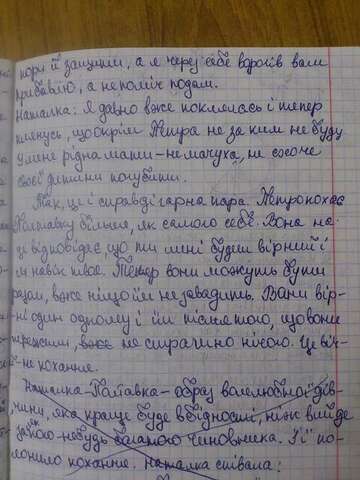 порі й защити, а я через себе ворогів вам
прибавлю, а не поміч подам.
Наталка: Я давно вже поклялась і тепер
клянусь, що окрім Петра не за ким не буду
У мене рідна мати – не мачуха, не схоче
своєї дитини погубити.
Так, це і справді гарна пара. Петро кохає
Полтавку більше, як самого себе. Вона на
це відповідає, що ти мені будеш вірний і
я навік твоя. Тепер вони можуть бути
разом, вже ніщо їм не завадить. Вони вір-
ні один одному і їм після того, що вони
пережили, вже не страшно нічого. Це віч-
не кохання.
Наталка-Полтавка – образ волелюбної дів-
чини, яка краще буде в бідності, ніж вийде
за якого-небудь багатого чиновника. Її по-
лонило кохання. Наталка співала: